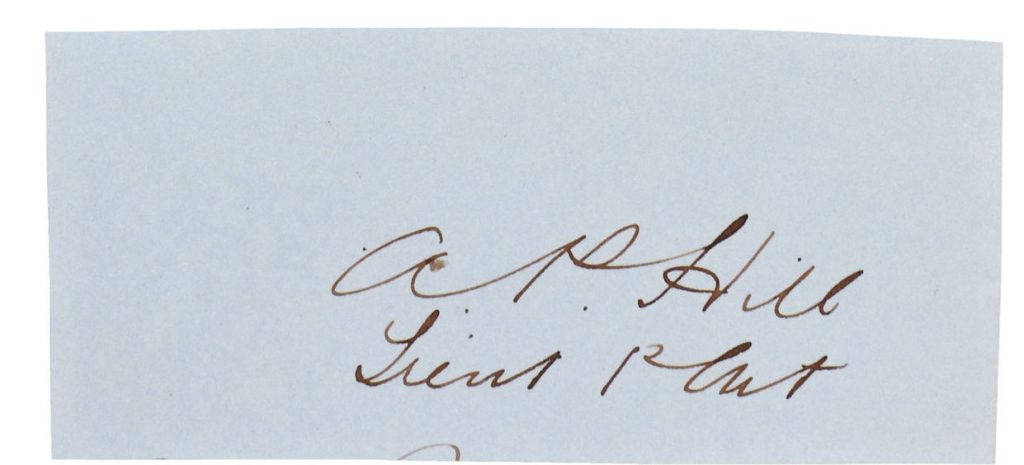 A P. Hill
Lieut 1st Art